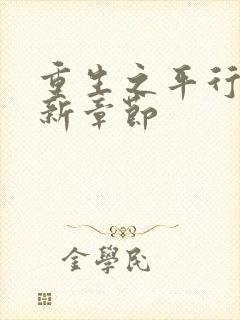 重生之平行
新章節
金學民